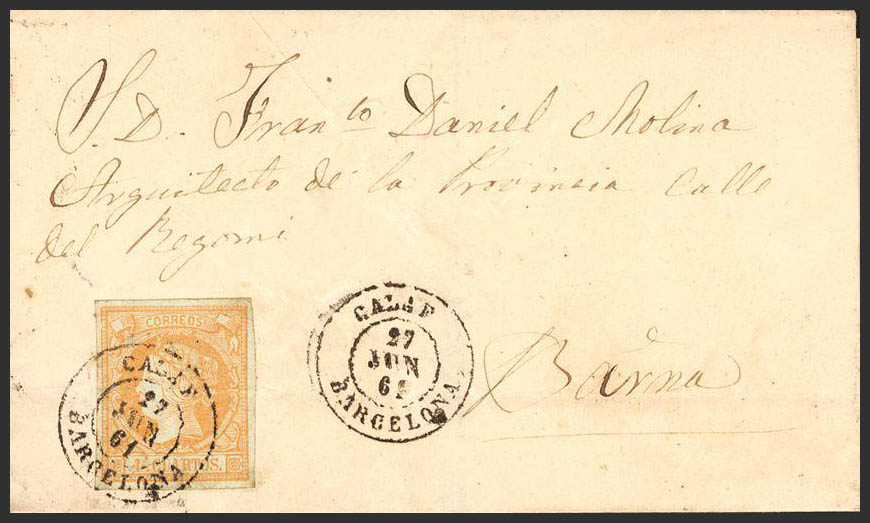 S. D. Fran.to Daniel Molina
Arquitecto de la Provincia Calle
del Regomi
CORREOS
CALAF
27
JUN
61
BARCELONA
CUARTOS.
CALAF
27
JUN
61
BARCELONA
Barna